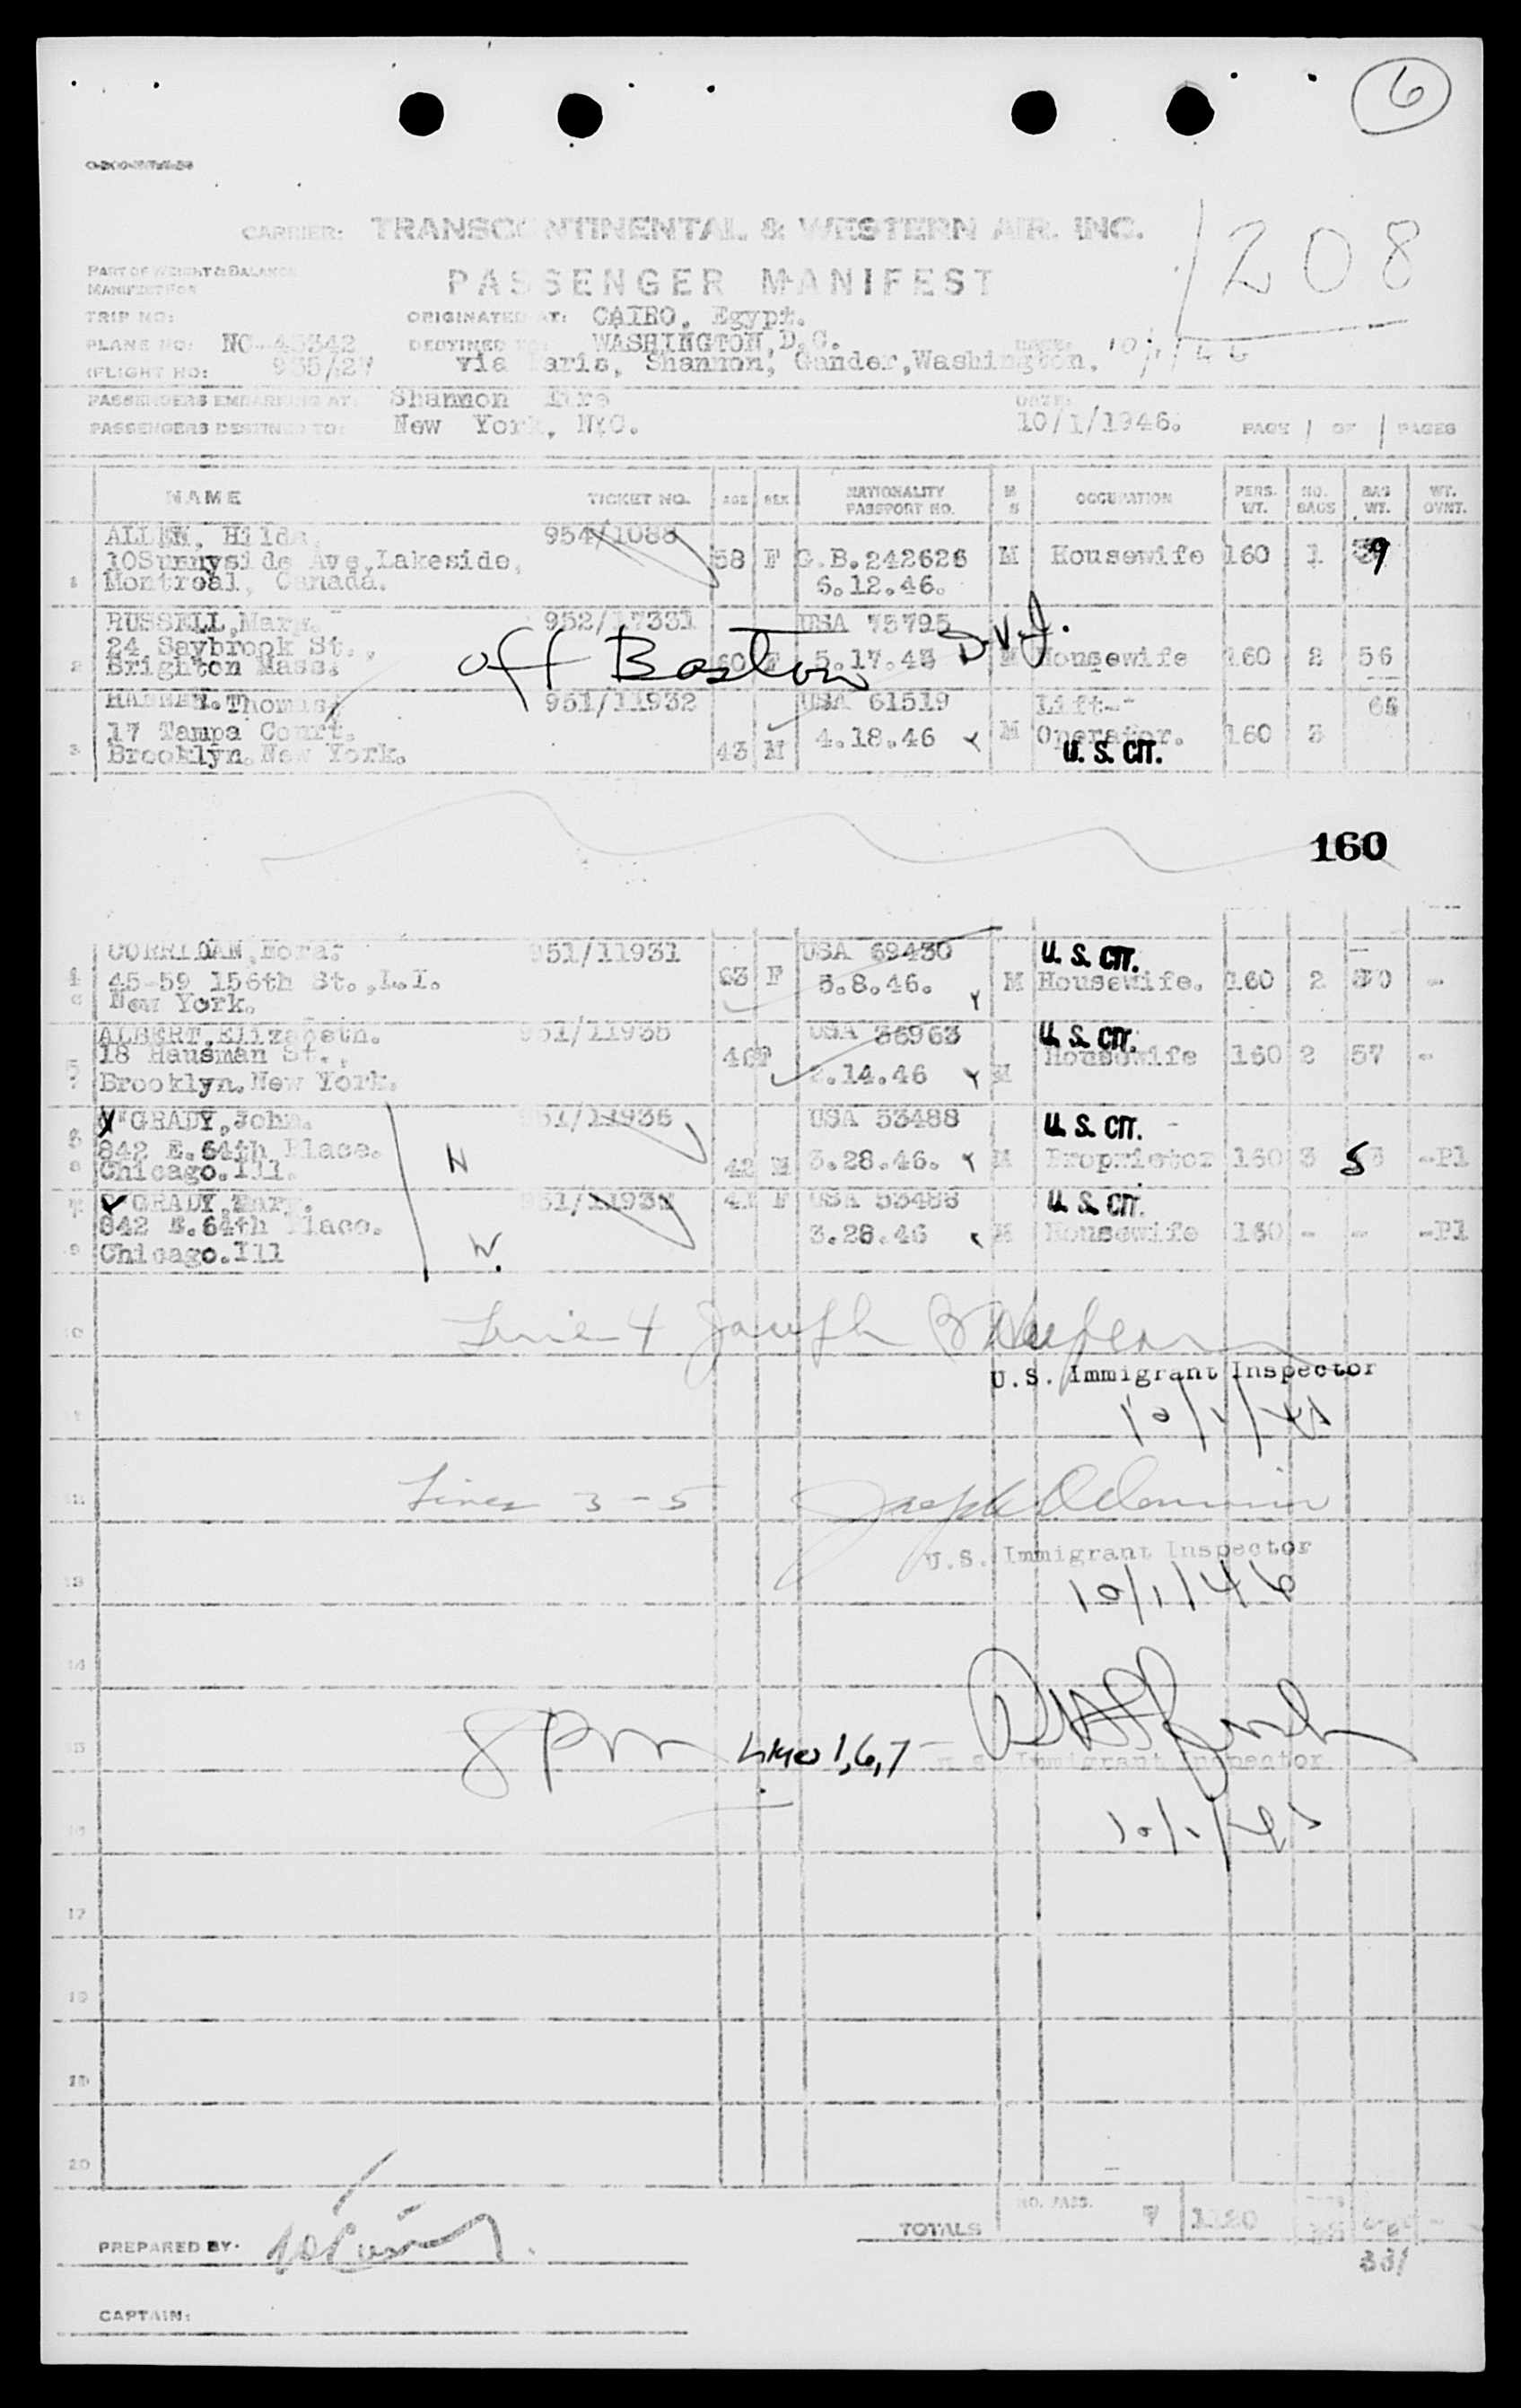 6
CARRIER: TRANSCONTINENTAL & WESTERN AIR. INC.
1208
PART OF WEIGHT & BALANCE
MANIFEST FOR
PASSENGER MANIFEST
TRIP NO:
ORIGINATED AT: CAIRO, Egypt.
PLANE NO: NC-45342
DESTINED TO: WASHINGTON, D.C.
DATE: 10/1/46
(FLIGHT NO: 955/27
via Paris, Shannon, Gander, Washington.
PASSENGERS EMBARKING AT: Shannon Eire
DATE:
PASSENGERS DESTINED TO: New York, NYC.
10/1/1946.
PAGE 1 OF 1 PAGES
NAME TICKET NO. AGE SEX NATIONALITY PASSPORT NO. M S OCCUPATION PERS. WT. NO. BAGS BAG WT. WT. OVNT.
ALLEN, Hilda. 954/1088
10Sunnyside Ave,Lakeside, 58 F G.B.242626 M Housewife 160 1 39
1 Montreal, Canada. 6.12.46.
RUSSELL,Mary. 952/17331 USA 75795
24 Saybrook St.,
2 Brighton Mass. 60 F 5.17.43 M Housewife 160 2 56
off Boston
951/11932 USA 61519 Lift--
17 Tampa Court. 4.18.46 M Operator. 160 3
3 Brooklyn.New York. 43 M
U. S. CIT.
160
951/11931 USA 69430 U. S. CIT.
4 45-59 156th St.,L.I. 63 F 5.8.46. M Housewife. 160 2 -
New York.
ALBERT,Elizabeth. 951/11935 USA 36963 U. S. CIT.
18 Hausman St., 46 F Housewife 160 2 57 -
5 Brooklyn.New York. .14.46 M
O'GRADY,John. 951/11936 USA 53488 U. S. CIT.
6 842 E.64th Place. N 42 M 3.28.46. M Proprietor 160 3 -Pl
Chicago.Ill.
7 O'GRADY,Mary. 41 F USA 53488 U. S. CIT.
842 E.64th Place. 3.28.46 M Housewife 160 - - -Pl
9 Chicago.Ill N.
10 Line 4
U.S. Immigrant Inspector
10/1/46
12 Lines 3-5
U.S. Immigrant Inspector
13 10/1/46
14
15 8 PM Lines 1,6,7-
U.S. Immigrant Inspector
16 10/1/46
17
20
TOTALS NO. PASS. 7 1120
331
PREPARED BY.
CAPTAIN: